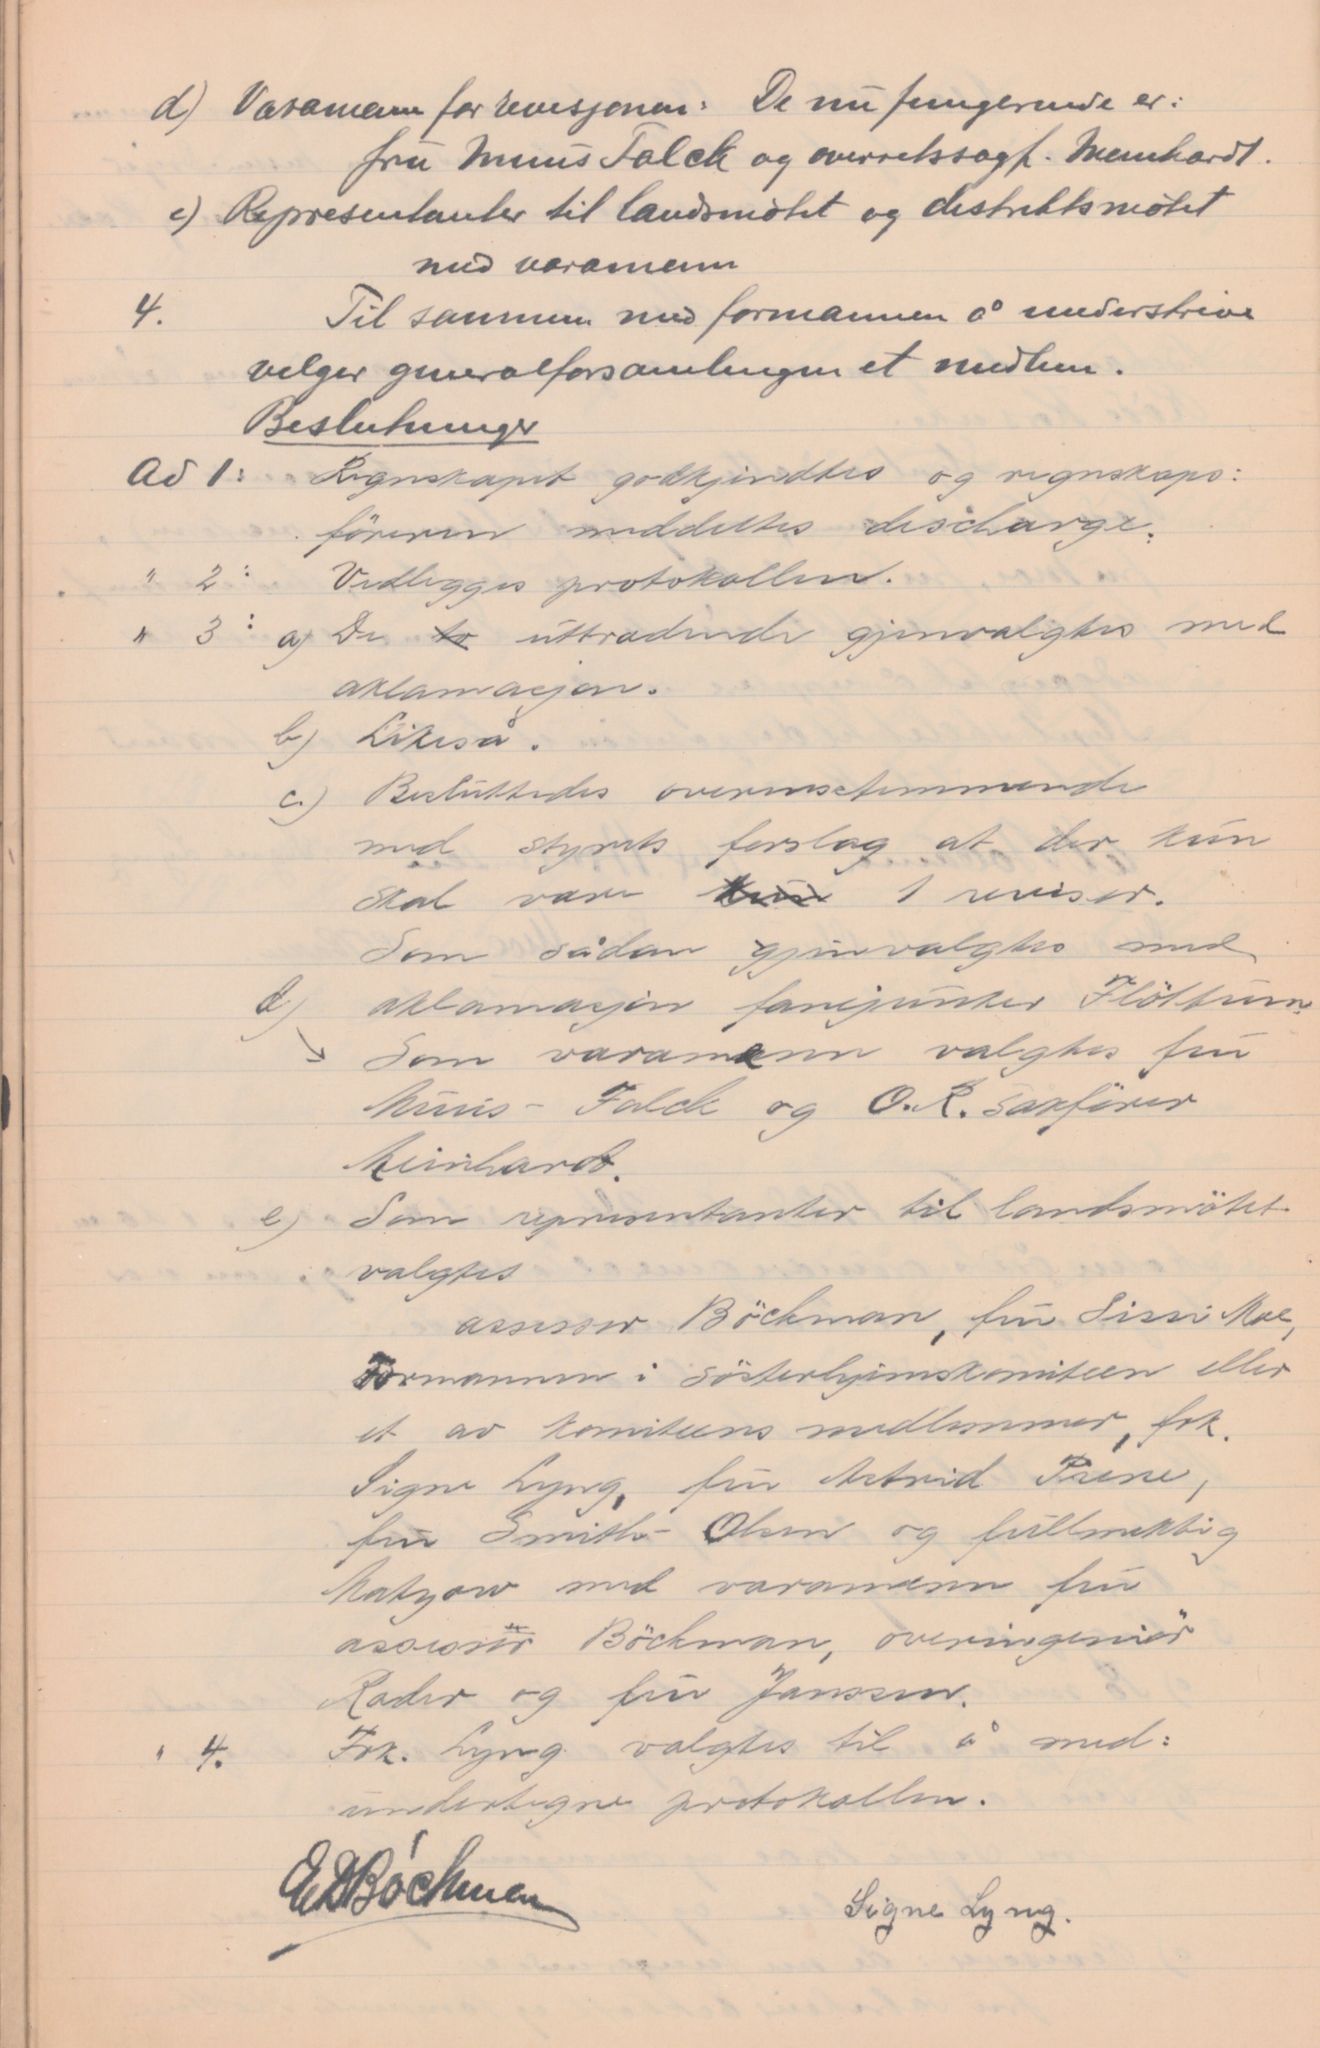 d) Varamenn for revisjonen: De nu fungerende er:
fru Muus Falck og overretssagf. Meinhardt.
e) Representanter til landsmötet og distriktsmötet
med varamenn
4. Til sammen med formannen å underskrive
velger generalforsamlingen et medlem.
Beslutninger
Ad 1: Regnskapet godkjendtes og regnskaps:
föreren meddeltes discharge.
" 2: Vedlegges protokollen.
" 3: a) De to uttredende gjenvalgtes med
aklamasjon.
b) Likeså.
c.) Besluttedes overensstemmende
med styrets forslag at der kun
skal være kun 1 revisor.
Som sådan gjenvalgtes med
d) aklamasjon fanejunker Flöttum.
Som varamenn valgtes fru
Muus-Falck og O.R. Sakförer
Meinhardt.
e) Som representanter til landsmötet
valgtes
assessor Böckman, fru Sissi Moe,
Formannen i Sösterhjemskomiteen eller
et av komiteens medlemmer, frk.
Signe Lyng, fru Astrid
fru Smith-Olsen og fullmektig
Matzow med varamenn fru
assessor Böckman, overingeniör
Rader og fru Janssen.
" 4. Frk. Lyng valgtes til å med:
undertegne protokollen.
E D Böckman
Signe Lyng.